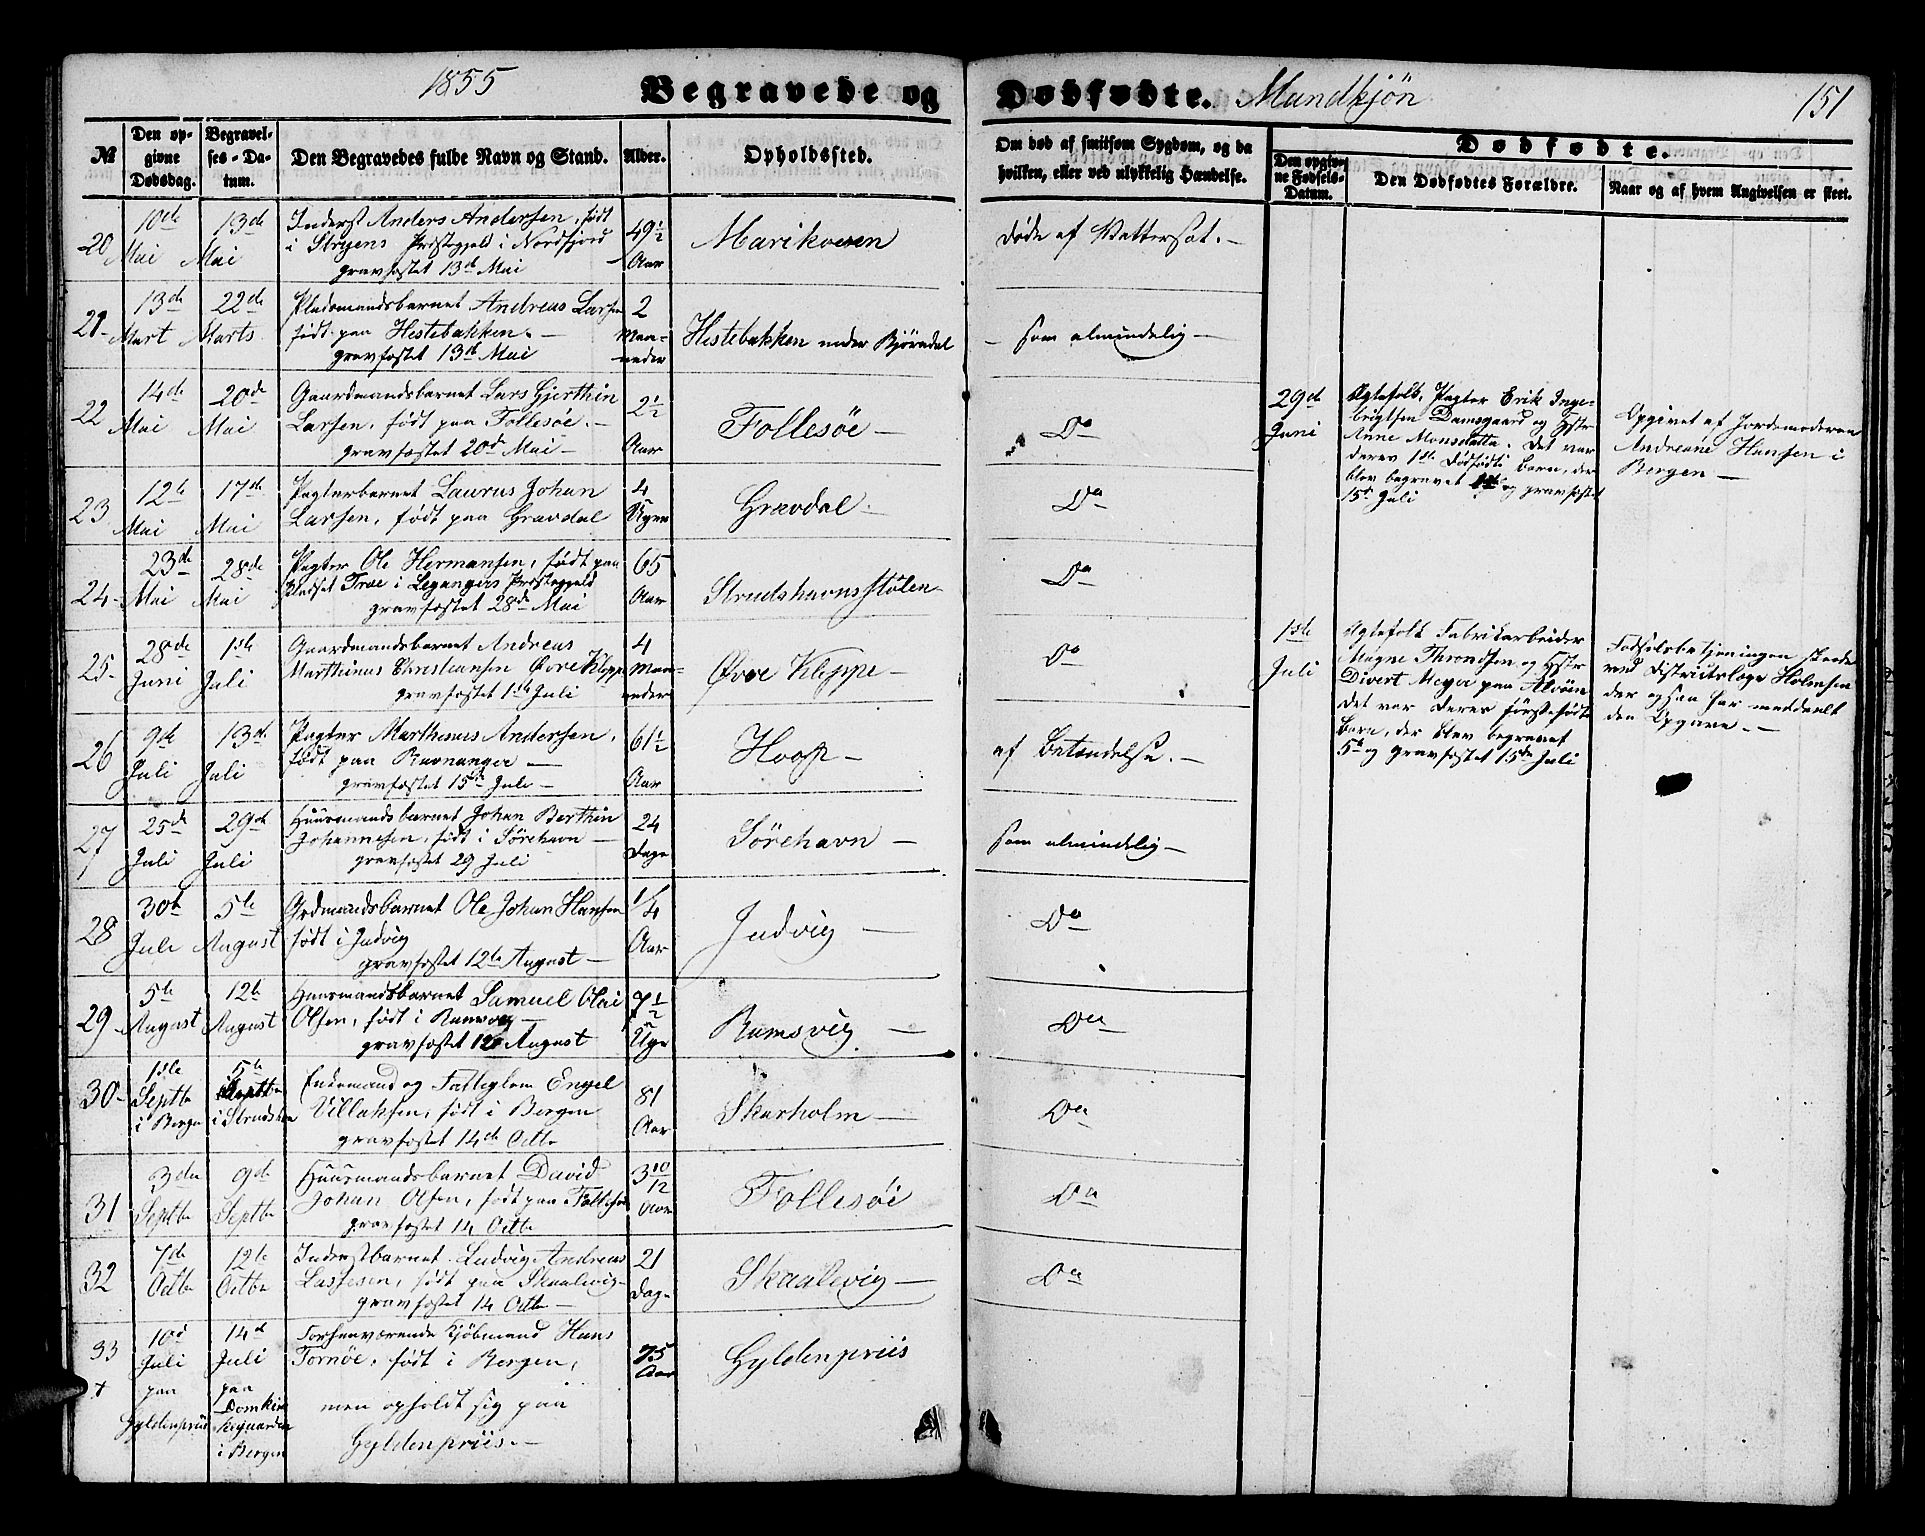 1855 Begravede og Dødfødte. Mandkjøn 151
№
Den opgivne Dødsdag.
Begravelses-Datum.
Den Begravedes fulde Navn og Stand.
Alder.
Opholdssted.
Om død af smitsom Sygdom, og da
hvilken, eller ved ulykkelig Hændelse.
Dødfødte.
Den opgivne Fødsels-Datum.
Den Dødfødtes Forældre.
Naar og af hvem Angivelsen er skeet.
20
10de Mai
13de Mai
Inderst Anders Andersen, født
i Stryens Præstegjeld i Nordfjord
gravfæstet 13de Mai
49½ Aar
Marikoven
døde af Vattersot.-
21-
13de Mart
22de Marts
Pladsmandsbarnet Andreas Larsen
født paa Hestebakken.-
gravfæstet 13de Mai
2 Maaneder
Hestebakken under Bjørndal
- som almindelig -
22
14de Mai
20de Mai
Gaardmandsbarnet Lars Gjerthin
Larsen, født paa Follesøe.-
gravfæstet 20de Mai-
2½ Aar
Follesøe -
Do
23
12te Mai
17de Mai
Pagterbarnet Laurus Johan
Larsen, født paa Gravdal
4 Uger
Gravdal-
Do
24-
23de Mai
28de Mai
Pagter Ole Hermansen, født paa
Pladset Træ i Legangers Præstegjeld
gravfæstet 28de Mai
65 Aar
Strudshavns Stølen-
Do
25-
28de Juni
1ste Juli
Gaardmandsbarnet Andreas
Marthinus Christiansen Øvre Kleppe
gravfæstet 1ste Juli
4 Maaneder
Øvre Kleppe-
Do
26
9de Juli
13de Juli
Pagter Marthinus Andersen,
født paa Ravnanger -
gravfæstet 15de Juli-
61½ Aar
Hoop-
af Betændelse.-
27
25de Juli
29de Juli
Huusmandsbarnet Johan Berthin
Johannesen, født i Sørehavn -
gravfæstet 29 Juli
24 Dage
Sørehavn -
som almindelig -
28
30te Juli
5te August
Grdmandsbarnet Ole Johan Hansen
født i Judvig
gravfæstet 12te August -
1/4 Aar
Judvig -
Do
29-
5te August
12te August
Huusmandsbarnet Samuel Olai
Olsen, født i
gravfæstet 12 August
7½ Uge
Ramsvig -
Do
30-
1ste Septbr i Bergen
5te Septbr i
Enkemand og Fattiglem Engel
Villaksen, født i Bergen
gravfæstet 14de Octbr
81 Aar
Skarholm -
Do
31
3die Septbr
9de Septbr
Huusmandsbarnet David
Johan Olsen, født paa Follesøe
gravfæstet 14 Octbr
3 10/12 Aar
Follesøe
Do
32
7de Octbr
12te Octbr
Inderstbarnet Ludvig Andreas
Lassesen, født paa Skaalevig-
gravfæstet 14 Octbr -
21 Dage
Skaalevig -
Do
33
+
10de Juli paa Gyldenpriis
14de Juli paa Domkirkegaarden i Bergen
Forhenværende Kjøbmand Hans
Tornøe, født i Bergen,
men opholdt sig paa
Gyldenpriis.-
75 Aar
Gyldenpriis
29de Juni
Ægtefolk, Pagter Erik Inge-
brigtsen Damsgaard og Hstr
Anne Monsdatter. Det var
deres 1ste Dødfødte Barn, der
blev begravet og gravfæstet
15de Juli
Opgivet af Jordemoderen
Andreane Hansen i
Bergen -
1ste Juli
Ægtefolk Fabrikarbeider
Magne Throndsen og Hstr
Divert Meyer paa Alvøen
det var deres førstefødte
Barn, der blev begravet
5te og gravfæstet 15de Juli
Fødselsbetjeningen skede
ved Districtslæge Holmsen
der ogsaa har meddeelt
den Opgave.-